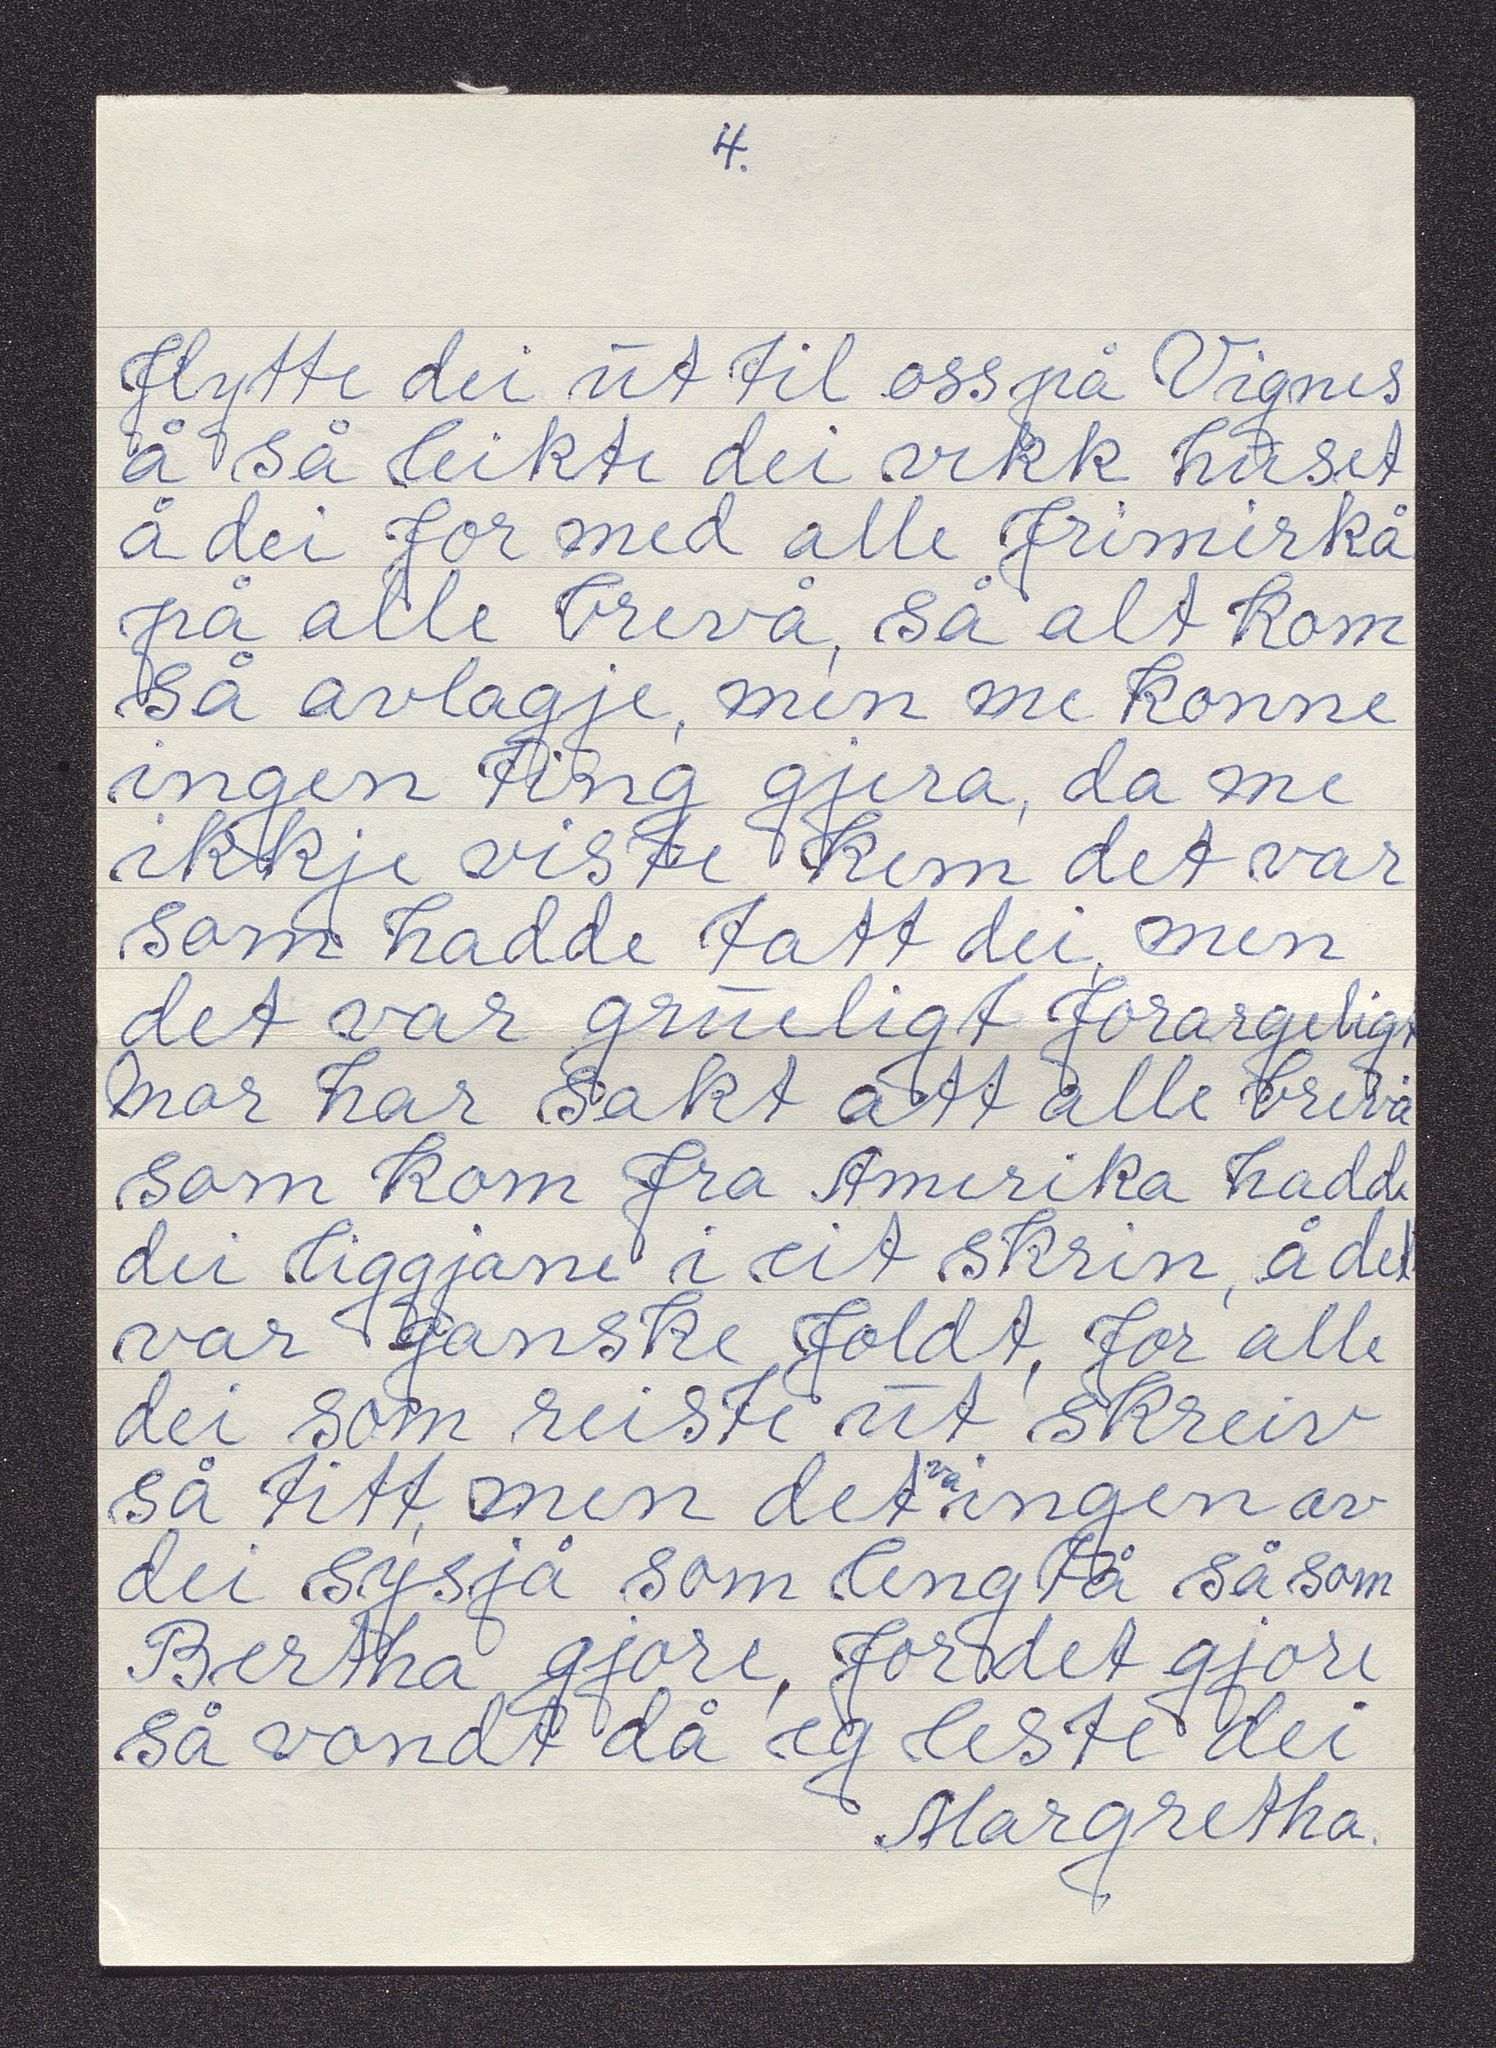 4.
flytte dei ūt til oss på Vignes
å så leikte dei vekk hūset
å dei for med alle frimerkå
på alle brevå, så alt kom
så avlagje, men me konne
ingen ting gjera, da me
ikkje viste kem det var
som hadde tatt dei, men
det var grūeligt forargeligt
Mor har sakt att alle brevå
som kom fra Amerika hadde
dei liggjane i eit skrin, å det
var ganske foldt, for alle
dei som reiste ūt skreiv
så titt, men det va ingen av
dei sysjå som lengtå så som
Bertha gjore, for det gjore
så vondt då eg leste dei
Margretha.